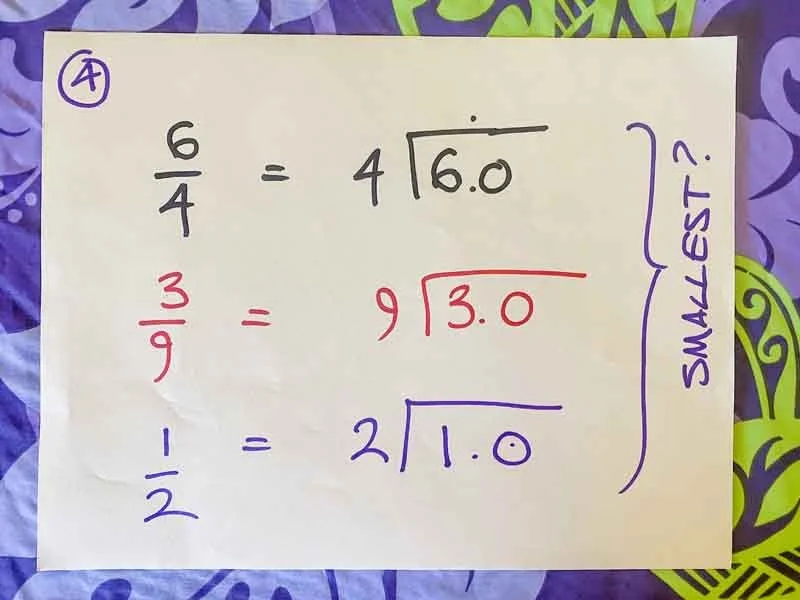 4
6/4 = 4 ⟌ 6.0
3/9 = 9 ⟌ 3.0
1/2 = 2 ⟌ 1.0
SMALLEST?